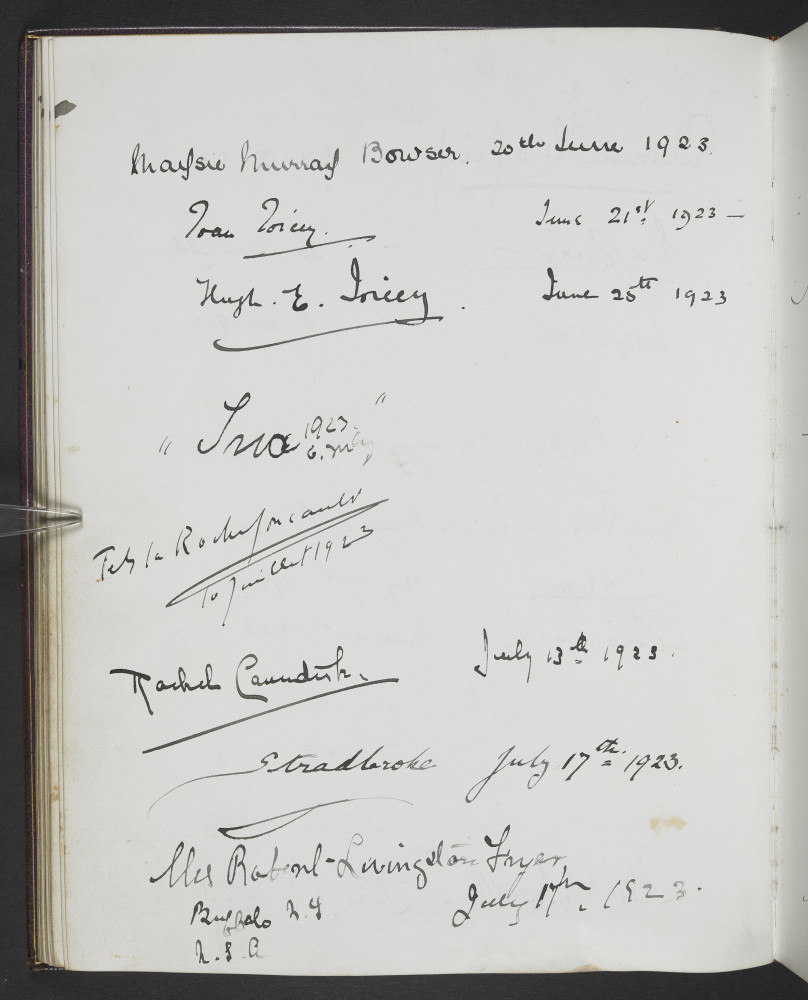 Maysie Murray Bowser. 20th June 1923.
Joan Joicey. June 21st. 1923 —
Hugh. E. Joicey. June 25th 1923
" Ina 1923. "
6.
la Rochefoucauld
10 Juillet 1923
Rachel Cavendish. July 13th 1923.
Stradbroke July 17th. 1923.
Mrs Robert-Livingston Fryer,
July 17th. 1923.
Buffalo N.Y
U.S.A